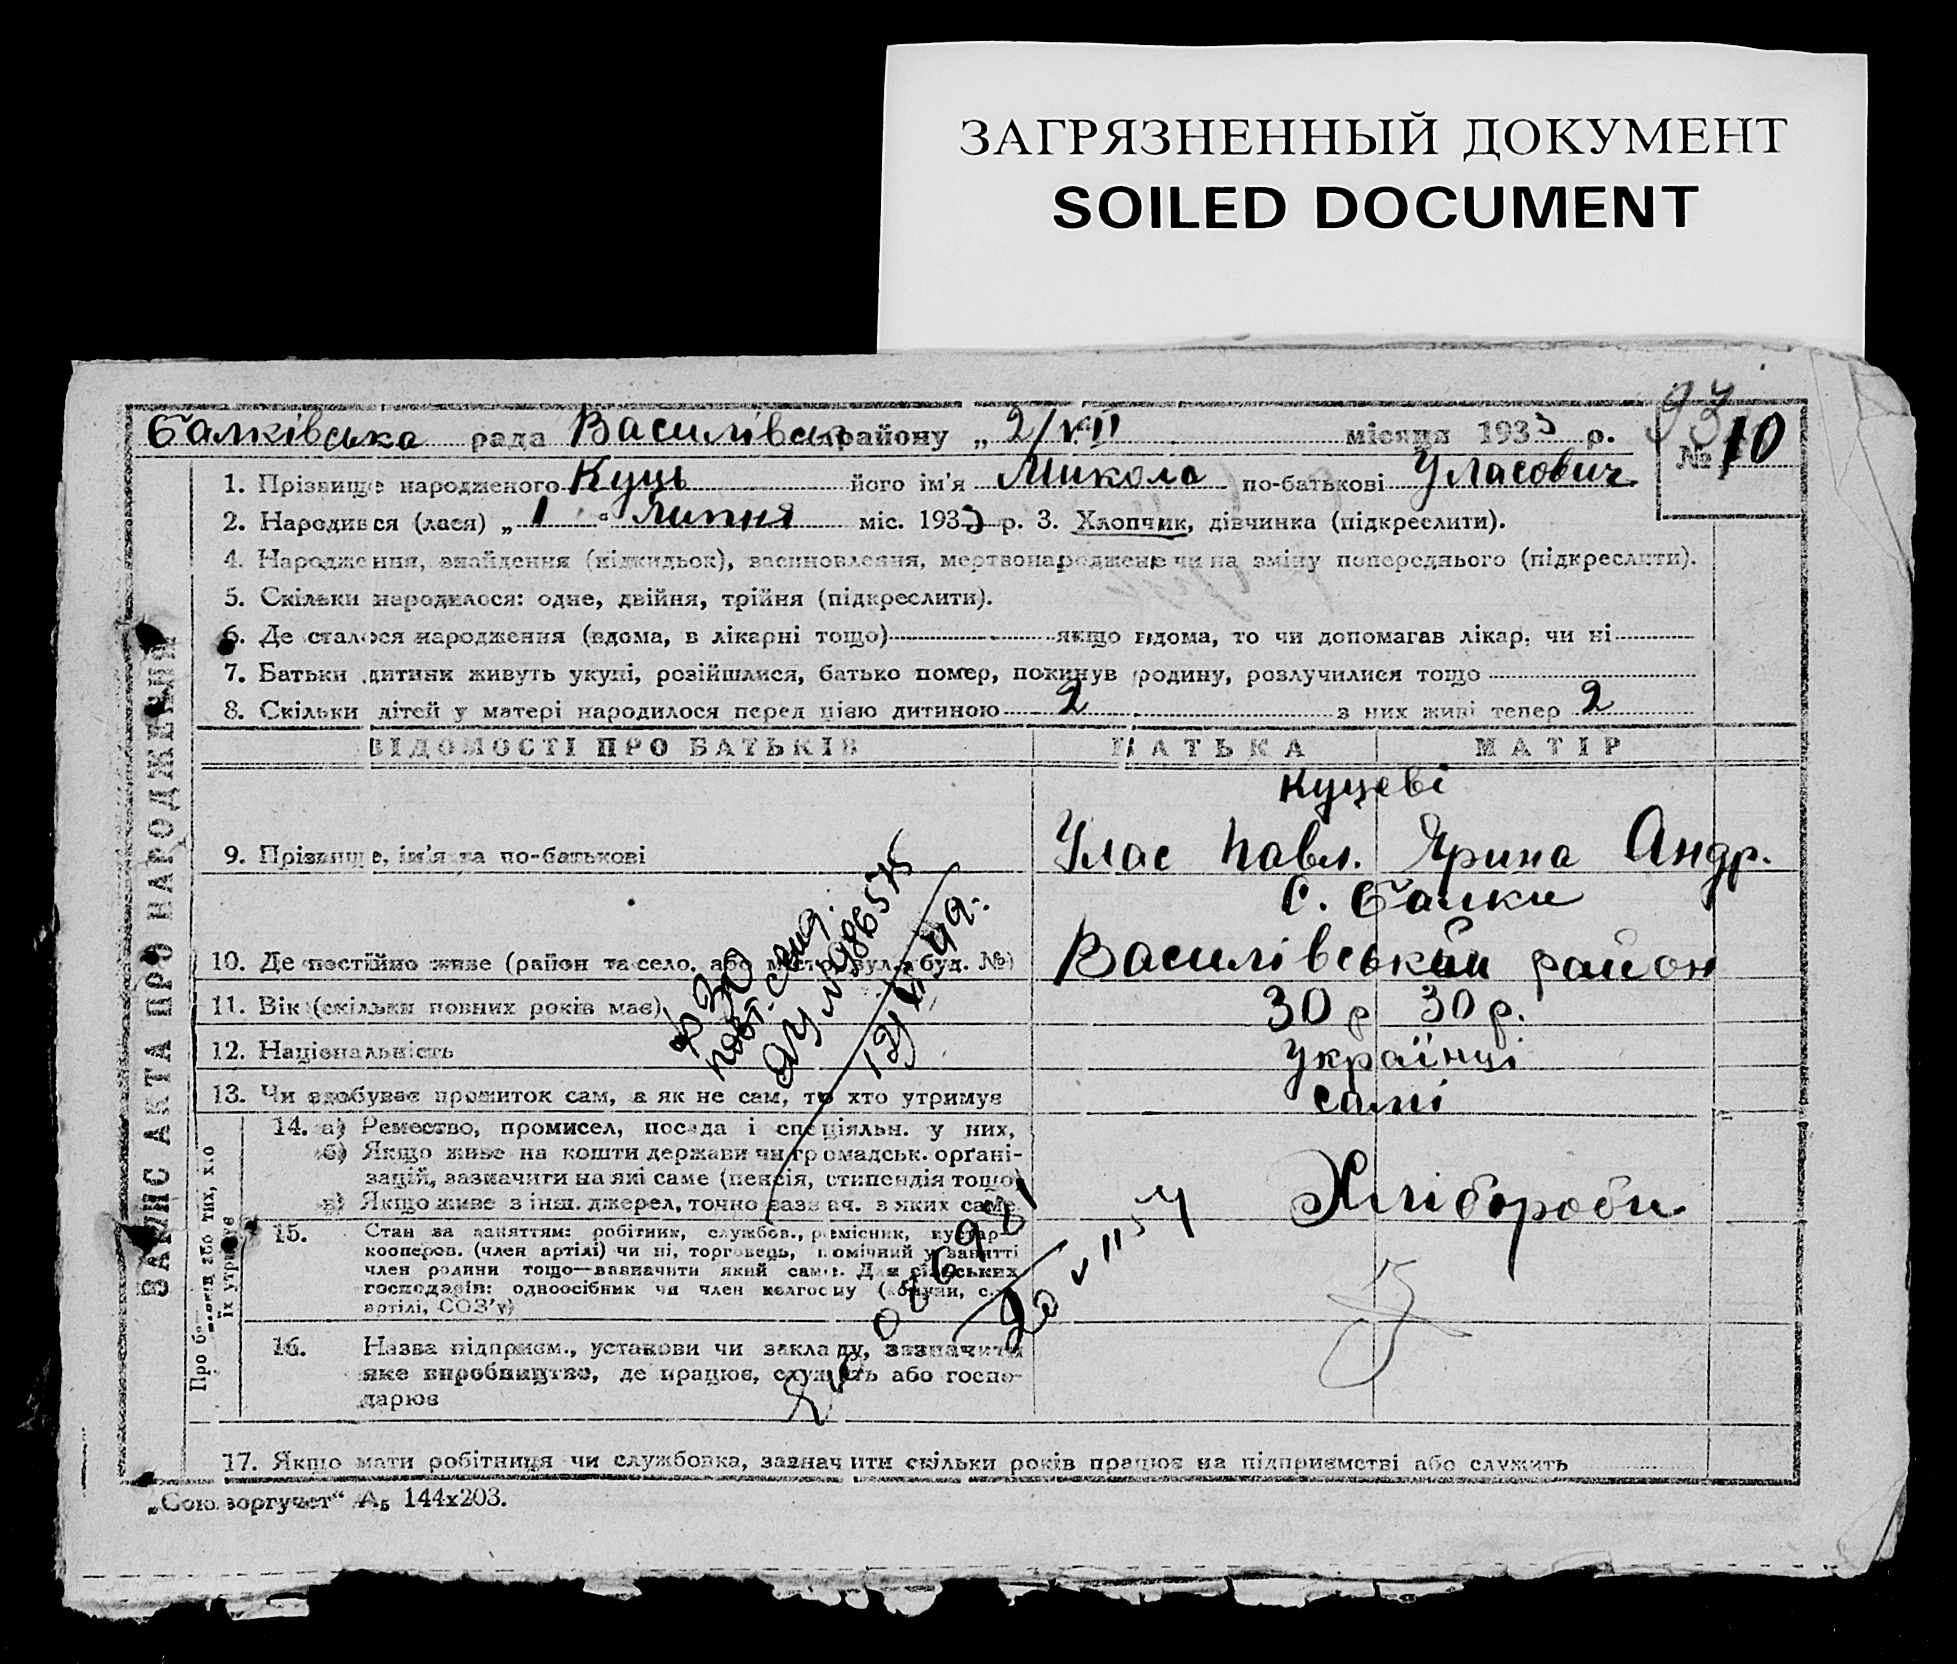 ЗАГРЯЗНЕННЫЙ ДОКУМЕНТ
SOILED DOCUMENT
93
Балківська рада Василівськ району „ 2/VII місяця 1933 р.
№ 10
1. Прізвище народженого Куць його ім'я Микола по-батькові Уласович
2. Народився (лася) „ 1 " Липня міс. 1933 р. 3. Хлопчик, дівчинка (підкреслити).
4. Народження, знайдення (підкидьок), всиновлення, мертвонароджене чи на зміну попереднього (підкреслити).
5. Скільки народилося: одне, двійня, трійня (підкреслити).
6. Де сталося народження (вдома, в лікарні тощо) якщо вдома, то чи допомагав лікар, чи ні
7. Батьки дитини живуть укупі, розійшлися, батько помер, покинув родину, розлучилися тощо
8. Скільки дітей у матері народилося перед цією дитиною 2 з них живі тепер 2
ВІДОМОСТІ ПРО БАТЬКІВ БАТЬКА МАТІР
Куцеві
9. Прізвище, ім'я та по-батькові Улас Павл. Ярина Андр.
с. Балки
10. Де постійно живе (район та село, або місто, вул. буд. №) Василівський район
11. Вік (скільки повних років має) 30 р 30 р.
12. Національність Українці
13. Чи здобуває прожиток сам, а як не сам, то хто утримує самі
14. а) Ремество, промисел, посада і спеціяльн. у них,
б) Якщо живе на кошти держави чи громадськ. органі-
зацій, зазначити на які саме (пенсія, стипендія тощо)
в) Якщо живе з інш. джерел, точно зазнач. з яких саме
Хлібороби
15. Стан за заняттям: робітник, службов., ремісник, кустар
кооперов. (член артілі) чи ні, торговець, помічний у занятті
член родини тощо—зазначити який саме. Для сільських
господарів: одноосібник чи член колгоспу (комуни, с.-г.
артілі, СОЗ'у)
16. Назва підприєм., установи чи закладу, зазначити
яке виробництво, де працює, служить або госпо-
дарює
17. Якщо мати робітниця чи службовка, зазначити скільки років працює на підприємстві або служить
ЗАПИС АКТА ПРО НАРОДЖЕННЯ
їх утримує
„Союзоргучет" А₅ 144х203.